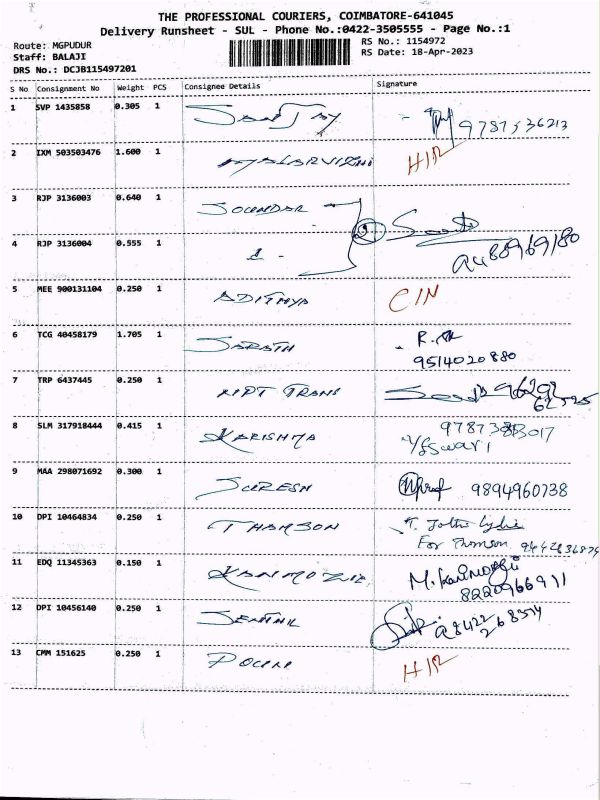 THE PROFESSIONAL COURIERS, COIMBATORE-641045
Delivery Runsheet - SUL - Phone No.:0422-3505555 - Page No.:1
Route: MGPUDUR
RS No.: 1154972
Staff: BALAJI
RS Date: 18-Apr-2023
DRS No.: DCJB115497201
S No Consignment No Weight PCS Consignee Details Signature
1 SVP 1435858 0.305 1
2 IXM 503503476 1.600 1 MALARVIZHI HIR
3 RJP 3136003 0.640 1 SOUNDAR
4 RJP 3136004 0.555 1
5 MEE 900131104 0.250 1 ADITHYA CIN
6 TCG 40458179 1.705 1 SARATH
9514020880
7 TRP 6437445 0.250 1 TRANS
8 SLM 317918444 0.415 1 KARISHMA
9 MAA 298071692 0.300 1 SURESH 9894960738
10 DPI 10464834 0.250 1 THAMSON
For Thomson
11 EDQ 11345363 0.150 1 M. Kanimozhi
8220966911
12 DPI 10456140 0.250 1 SENTHIL
13 CMM 151625 0.250 1 HIR